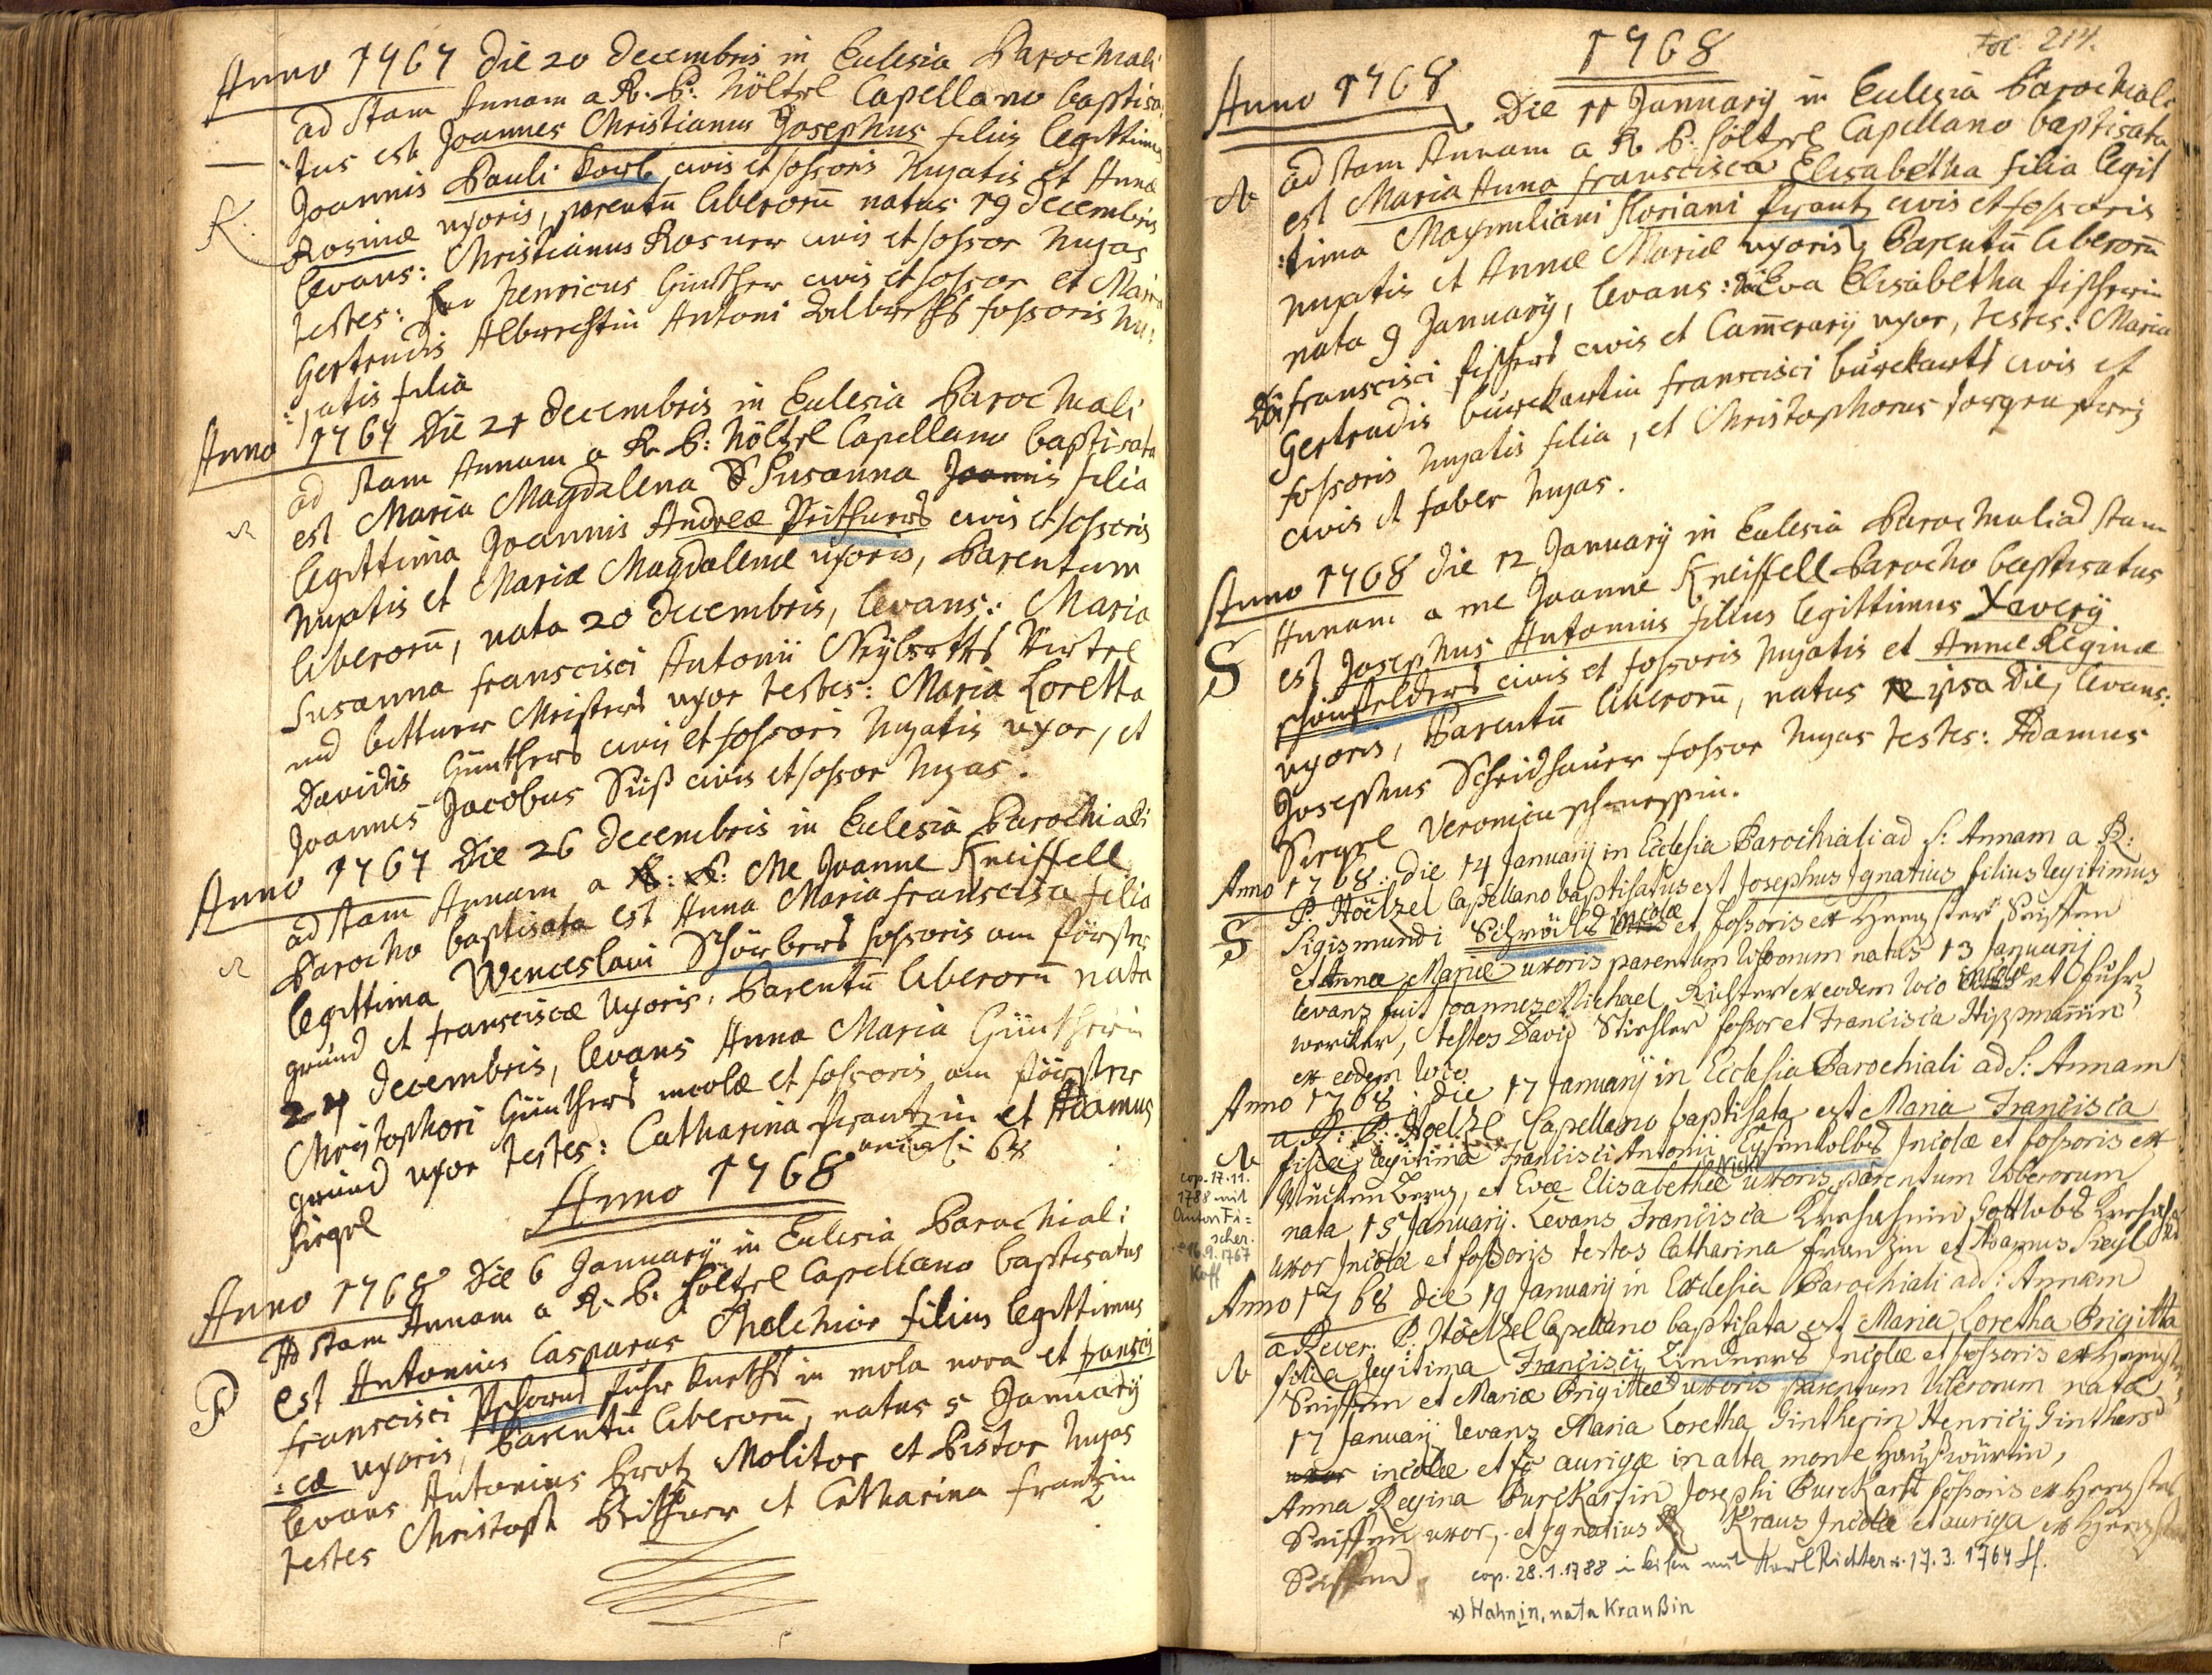 Anno 1767 Die 20 Decembris in Eclesia Parochiali
ad stam Annam a R. P. Höltzel Capellano baptisa
:tus est Joannes Christianus Josephus filius legittimus
Joannis Pauli Korb civis et fossoris hujatis et Annæ
R.
Rosinæ uxoris, parentū liberorū natus 19 Decembris
levans: Christianus Rosner civis et fossor hujas
testes: Henricus Günther civis et fossor et Maria
Gertrudis Albrechtin Antoni Albrechts fossoris hu:
:jatis filia
Anno 1767 Die 21 Decembris in Eclesia Parochiali
ad stam Annam a R. P: Höltzel Capellano baptisata
est Maria Magdalena Susanna Joannis filia
legittima Joannis Andreæ Peithners civis et fossoris
hujatis et Mariæ Magdalenæ uxoris, Parentum
liberorū, nata 20 Decembris, levans: Maria
Susanna Franscisci Antonii
und bittner Meisters uxor testes: Maria Loretta
Davidis Günthers civis et fossoris hujatis uxor, et
Joannes Jacobus Süß civis et fossor hujas.
Anno 1767 Die 26 Decembris in Eclesia Parochiali
ad stam Annam a R: P: Me Joanne Kneissell
Parocho baptisata est Anna Maria Franscisca filia
legittima Wenceslaui Schürbers fossoris am Förster
grund et Franciscæ Uxoris, Parentū liberorū nata
24 Decembris, levans Anna Maria Güntherin
Christophori Günthers incolæ et fossoris am Förster
grund uxor testes: Catharina Frantzin et Adamus
Siegel
Anno 1768
Anno 1768 Die 6 January in Eclesia Parochiali
Ad stam Annam a R. P. Höltzel Capellano baptisatus
P
est Antonius Casparus Melchior filius legittimus
Franscisci Pschorns fuhr knechts in mola nova et Fransis
:cæ uxoris, Parentū liberorū, natus 5 January
levans Antonius Brotz Molitor et Pistor hujas
testes Christoph Peithner et Catharina Frantzin
1768
Fol. 214.
Anno 1768
Die 11 January in Eclesia Parochiali
ad stam Annam a R P. Höltzel Capellano baptisata
est Maria Anna Franscisca Elisabetha filia legit
:tima Maxmiliani Floriani Frantz civis et fossoris
hujatis et Annæ Mariæ uxoris, Parentū liberorū
nata 9 January, levans: Eva Elisabetha Fischerin
Franscisci Fischers civis et Cammerarij uxor, testes: Maria
Gertrudis Burckartin Franscisci Burckarts civis et
fossoris hujatis filia, et Christophorus
civis et faber hujas.
Anno 1768 die 12 January in Eclesia Parochiali ad stam
Annam a me Joanne Kneissell Parocho baptisatus
S
est Josephus Antonius filius legittimus Xaverÿ
Schönfelders civis et fossoris hujatis et Annæ Reginæ
uxoris, Parentū liberorū, natus ipsa die, levans:
Josephus Scheidhauer fossor hujas testes: Adamus
Siegel Veronica
Anno 1768: die 14 January in Ecclesia Parochiali ad S: Annam a R:
P. Höelzel Capellano baptisatus est Josephus Ignatius filius legitimus
S
Sigismundi Schröels incolæ et fossoris ex Hengster Seiffen
et Annæ Mariæ uxoris parentum liberorum natus 13 January
levans fuit Joannes Michael Richter ex eodem loco incola et fuhr
wercker, testes David Stiehler fossor et Francisca Hippmannin
ex eodem loco.
Anno 1768: die 17 January in Ecclesia Parochiali ad S: Annam
a R: P: Hoelzel Capellano baptisata est Maria Francisca
filia legitima Francisci Antonii Eysenkolbs Incolæ et fossoris ex
cop. 17. 11.
1788 mit
Anton Fi=
scher.
* 16.9.1767
Kaff
Mückenberg, et Evæ Elisabethæ uxoris, parentum liberorum
nata 15 January. Levans Francisca Gottlobs
uxor Incolæ et fossoris testes Catharina Franzin et Adamus Siegl
Anno 1768 die 19 January in Ecclesia Parochiali ad: Annam
a Rever. P. Höelzel Capellano baptisata est Maria Loretha Brigitta
filia legitima Francisij Lindners Incolæ et fossoris ex Hengster
Seiffen et Mariæ Brigittæ uxoris parentum liberorum nata
17 January levans Maria Loretha Gintherin Henrici Ginthers
incolæ et aurigæ in alta monte Haußwürtin,
Anna Regina Burckartin Josephi Burckart fossoris ex Hengster
Seiffen uxor, et Ignatius Kraus Incola et auriga ex Hengster
Seiffen.
cop. 28. 1. 1788 mit Karl Richter *. 17. 3. 1764
x) Hahnin, nata Kraußin